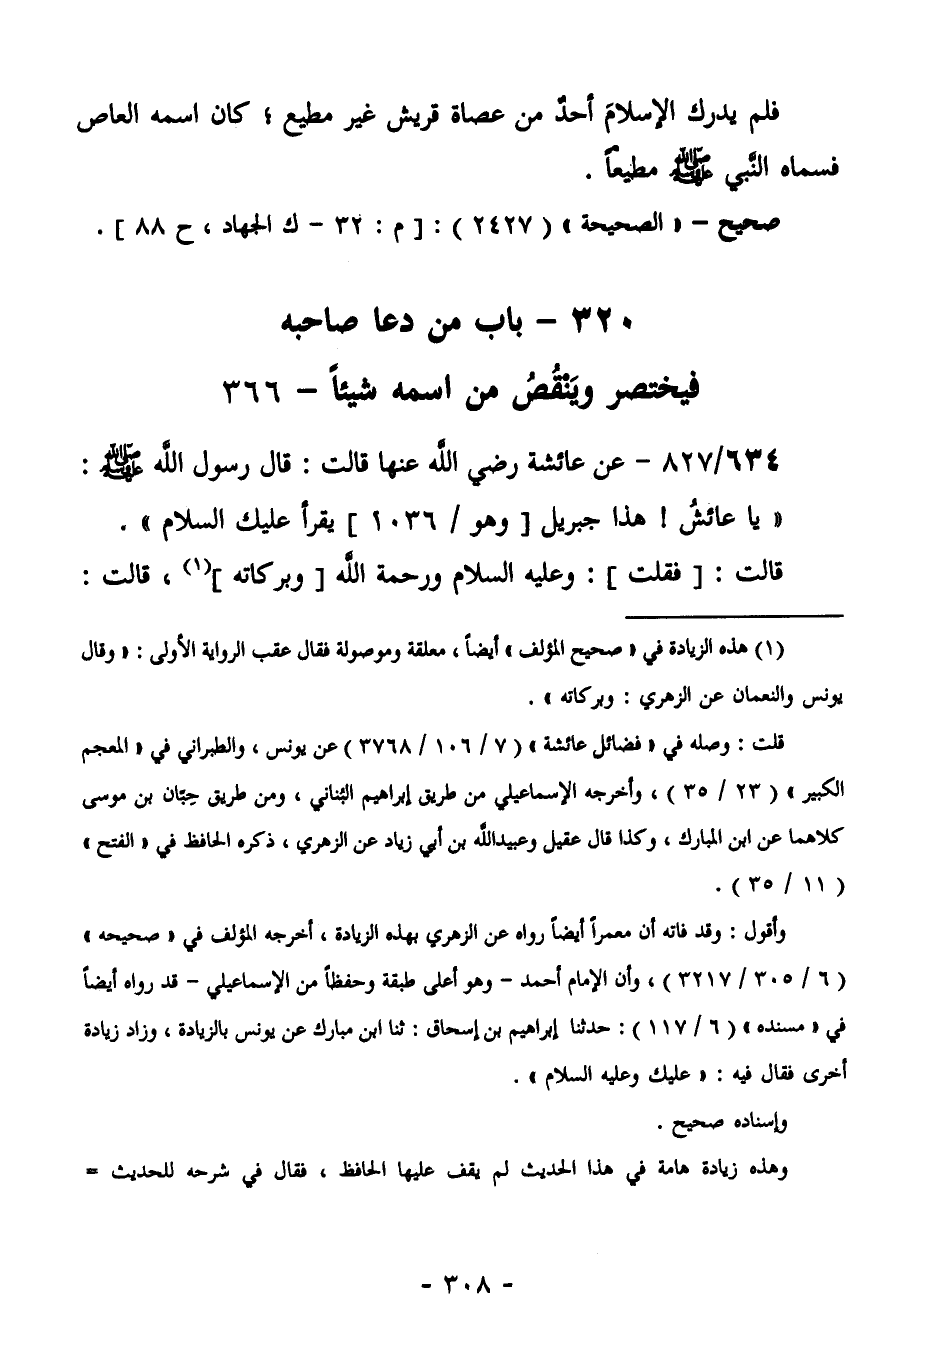 فلم يدرك الإسلامَ أحدٌ من عصاة قريش غير مطيع ؛ كان اسمه العاص
فسماه النَّبي ﷺ مطيعاً .
صحيح – « الصحيحة » ( ٢٤٢٧ ) : [ م : ٣٢ – ك الجهاد ، ح ٨٨ ] .
٣٢٠ – باب من دعا صاحبه
فيختصر ويَنْقُصُ من اسمه شيئاً – ٣٦٦
٨٢٧/٦٣٤ – عن عائشة رضي اللَّه عنها قالت : قال رسول اللَّه ﷺ :
« يا عائشُ ! هذا جبريل [ وهو / ١٠٣٦ ] يقرأ عليك السلام » .
قالت : [ فقلت ] : وعليه السلام ورحمة اللَّه [ وبركاته ](١) ، قالت :
(١) هذه الزيادة في « صحيح المؤلف » أيضاً ، معلقة وموصولة فقال عقب الرواية الأولى : « وقال
يونس والنعمان عن الزهري : وبركاته » .
قلت : وصله في « فضائل عائشة » ( ٧ / ١٠٦ / ٣٧٦٨ ) عن يونس ، والطبراني في « المعجم
الكبير » ( ٢٣ / ٣٥ ) ، وأخرجه الإسماعيلي من طريق إبراهيم البُناني ، ومن طريق حِبّان بن موسى
كلاهما عن ابن المبارك ، وكذا قال عقيل وعبيداللَّه بن أبي زياد عن الزهري ، ذكره الحافظ في « الفتح »
( ١١ / ٣٥ ) .
وأقول : وقد فاته أن معمراً أيضاً رواه عن الزهري بهذه الزيادة ، أخرجه المؤلف في « صحيحه »
( ٦ / ٣٠٥ / ٣٢١٧ ) ، وأن الإمام أحمد – وهو أعلى طبقة وحفظاً من الإسماعيلي – قد رواه أيضاً
في « مسنده » ( ٦ / ١١٧ ) : حدثنا إبراهيم بن إسحاق : ثنا ابن مبارك عن يونس بالزيادة ، وزاد زيادة
أخرى فقال فيه : « عليك وعليه السلام » .
وإسناده صحيح .
وهذه زيادة هامة في هذا الحديث لم يقف عليها الحافظ ، فقال في شرحه للحديث =
- ٣٠٨ -